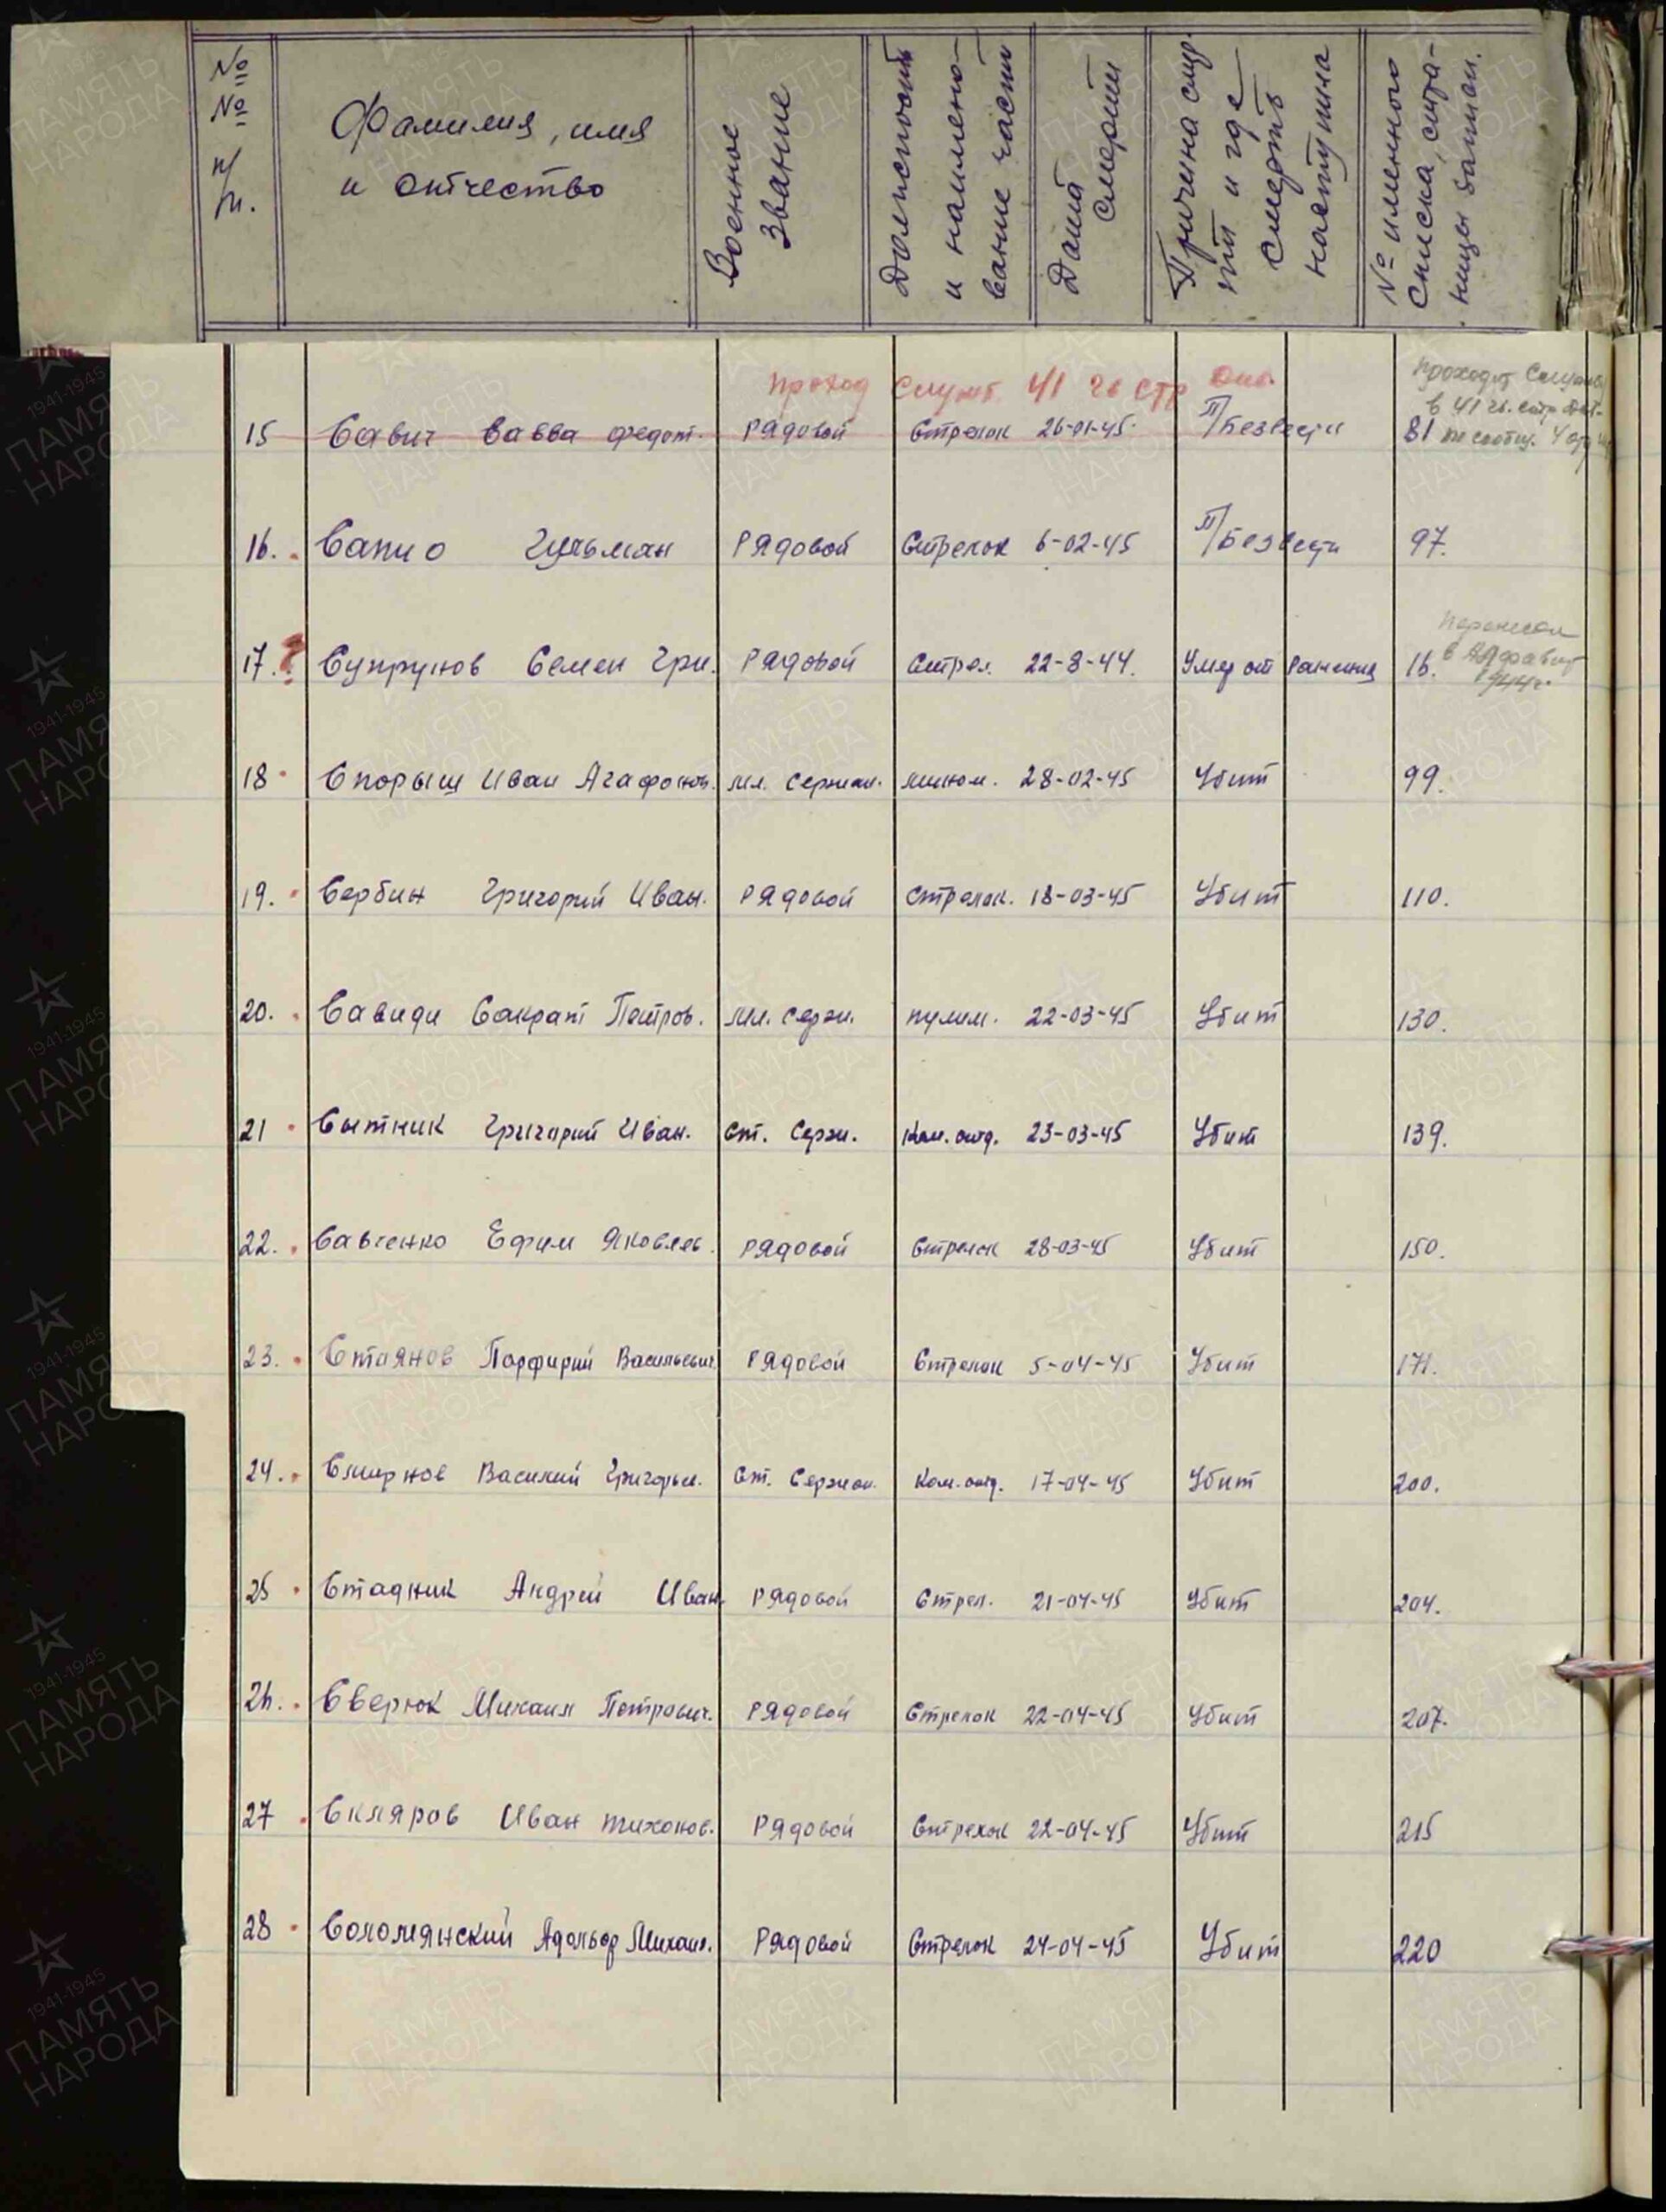 № № п/п.
Фамилия, имя и отчество
Военное звание
Должность и наименование части
Дата смерти
Причина смерти и где смерть наступила
№ именного списка, страницы
проход служб 41 гв стр
проходит
в 41 гв. стр
15 Савич Савва Федот. Рядовой Стрелок 26-01-45. П/Безвести 81
16. Сапио Рядовой Стрелок 6-02-45 П/Безвести 97.
Перенесен
в Алфавит
1944г.
17. Супрунов Семен Гри. Рядовой Стрел. 22-8-44. Умер от Ранения 16.
18 Спорыш Иван Агафонов. мл. Сержан. мином. 28-02-45 Убит 99.
19. Сербин Григорий Иван. Рядовой Стрелок. 18-03-45 Убит 110.
20. Савиди Сократ Петров. мл. Серж. пулем. 22-03-45 Убит 130.
21 Сытник Григорий Иван. Ст. Серж. Ком. отд. 23-03-45 Убит 139.
22. Савченко Ефим Яковлев. Рядовой Стрелок 28-03-45 Убит 150.
23. Стоянов Порфирий Васильевич Рядовой Стрелок 5-04-45 Убит 171.
24. Смирнов Василий Григорьев. Ст. Сержан. Ком. отд. 17-04-45 Убит 200.
25 Стадник Андрей Иван. Рядовой Стрел. 21-04-45 Убит 204.
26. Сверюк Михаил Петрович. Рядовой Стрелок 22-04-45 Убит 207.
27 Скляров Иван Тихонов. Рядовой Стрелок 22-04-45 Убит 215
28 Соломянский Адольф Михаил. Рядовой Стрелок 24-04-45 Убит 220